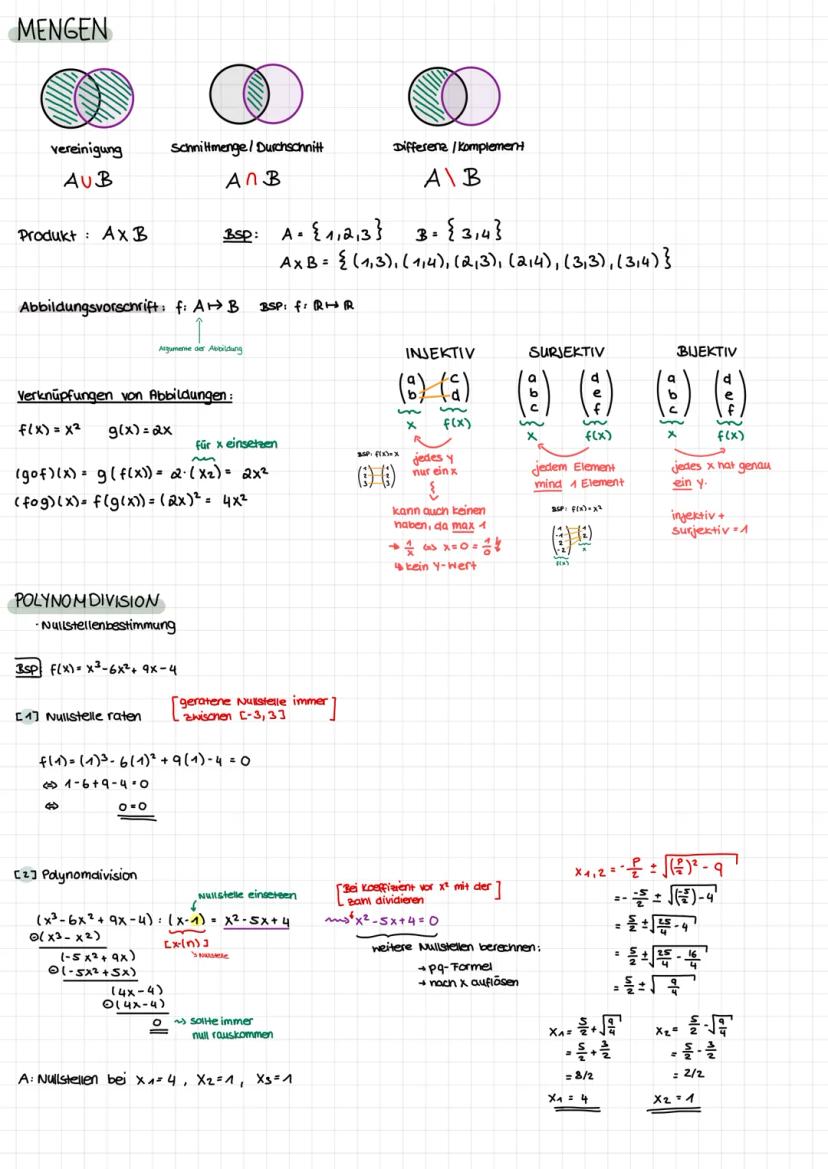 MENGEN
Vereinigung
Schnittmenge / Durchschnitt
Differenz / Komplement
A∪B
A∩B
A\B
Produkt: A×B
BSP: A = {1,2,3} B = {3,4}
A×B = {(1,3), (1,4), (2,3), (2,4), (3,3), (3,4)}
Abbildungsvorschrift: f: A↦B BSP: f: ℝ↦ℝ
Argumente der Abbildung
Verknüpfungen von Abbildungen:
f(x) = x² g(x) = 2x
für x einsetzen
(gof)(x) = g(f(x)) = 2·(x2) = 2x²
(fog)(x) = f(g(x)) = (2x)² = 4x²
INJEKTIV
a c
b d
x f(x)
BSP: f(x)=x
1 1
2 2
3 3
jedes y
nur ein x
kann auch keinen
haben, da max 1
→ 1/x ⇔ x=0 = 1/0 ↯
↳ kein y-Wert
SURJEKTIV
a d
b e
c f
x f(x)
jedem Element
mind 1 Element
BSP: f(x)=x²
1 1
-1 2
2
-2 x
f(x)
BIJEKTIV
a d
b e
c f
x f(x)
jedes x hat genau
ein y.
injektiv +
surjektiv = 1
POLYNOMDIVISION
· Nullstellenbestimmung
BSP f(x) = x³-6x²+9x-4
[1] Nullstelle raten
[geratene Nullstelle immer
zwischen [-3,3]]
f(1) = (1)³-6(1)²+9(1)-4 = 0
⇔ 1-6+9-4=0
⇔ 0=0
[2] Polynomdivision
Nullstelle einsetzen
(x³-6x²+9x-4) : (x-1) = x²-5x+4
⊖(x³-x²)
[x-(n)]
↳ Nullstelle
(-5x²+9x)
⊖(-5x²+5x)
(4x-4)
⊖(4x-4)
0 ⇝ sollte immer
null rauskommen
[Bei Koeffizient vor x² mit der
zahl dividieren]
⇝ x²-5x+4=0
weitere Nullstellen berechnen:
→ pq-Formel
→ nach x auflösen
x1,2 = -p/2 ± √((p/2)²-q)
= - -5/2 ± √((-5/2)-4)
= 5/2 ± √(25/4 - 4)
= 5/2 ± √(25/4 - 16/4)
= 5/2 ± √(9/4)
x1 = 5/2 + √(9/4)
= 5/2 + 3/2
= 8/2
x1 = 4
x2 = 5/2 - √(9/4)
= 5/2 - 3/2
= 2/2
x2 = 1
A: Nullstellen bei x1=4, x2=1, x3=1